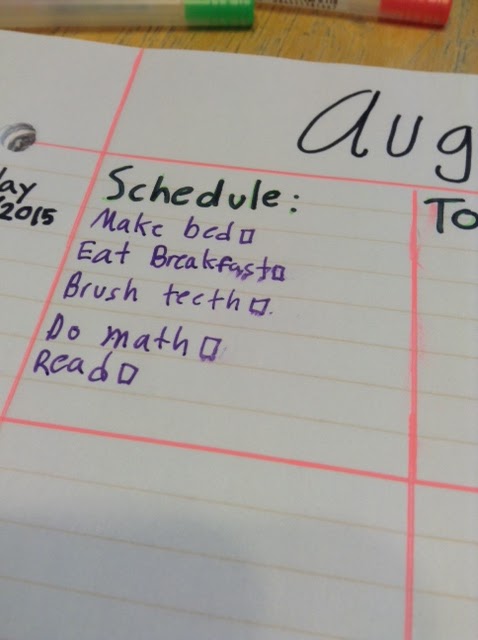 Aug
ay
/2015
Schedule:
Make bed
Eat Breakfast
Brush teeth
Do math
Read
To